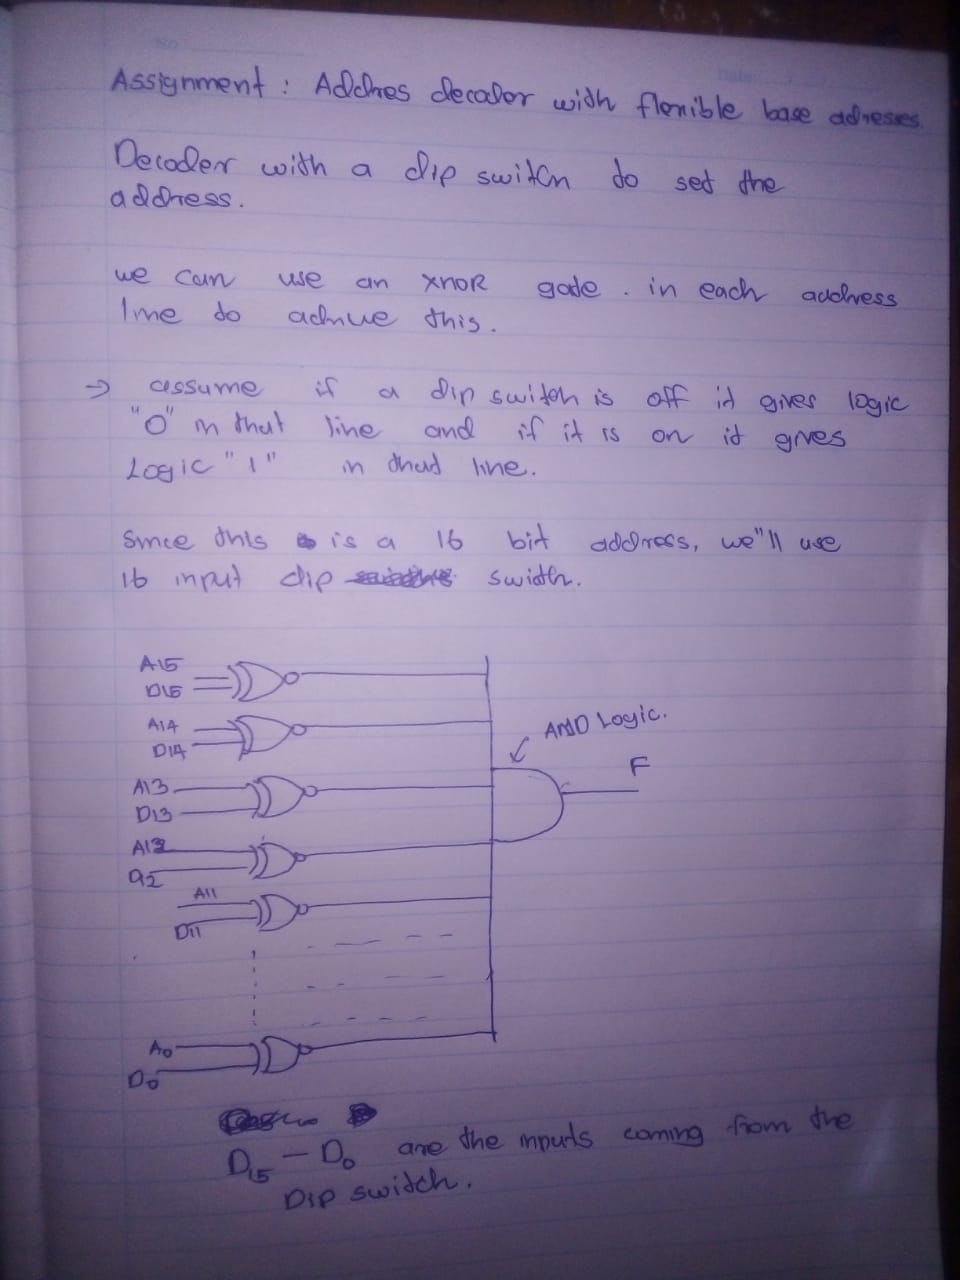 Assignment : Addres decoder with flexible base adresses.
Decoder with a dip switch to set the
address.
we can use an XNOR gate . in each address
line to achive this.
→ assume if a dip switch is off it gives logic
"0" in that line and if it is on it gives
Logic "1" in that line.
Since this is a 16 bit address, we"ll use
16 input dip switch.
A15
D15
A14
D14
AND Logic.
F
A13
D13
A12
D12
A11
D11
A0
D0
D15 – D0 are the inputs coming from the
DIP switch.